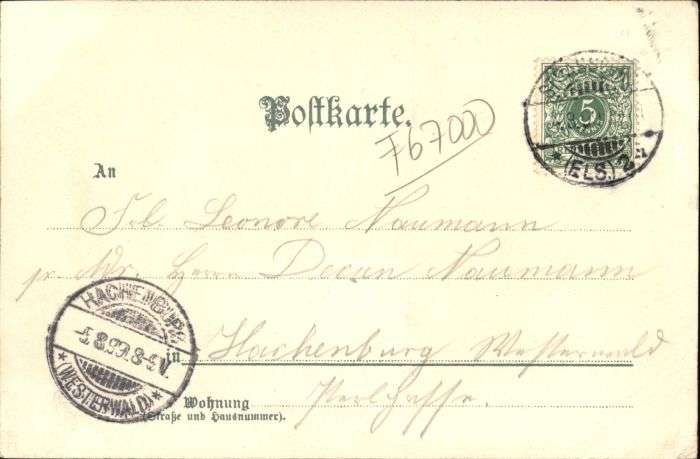 Postkarte.
767000
5
(ELS.)
An
Frl. Leonore Naumann
pr Adr. Herrn Decan Naumann
HACHENBURG
5.8.99.8-9V.
(WESTERWALD)
in Hachenburg Westerwald
Wohnung
(Straße und Hausnummer).